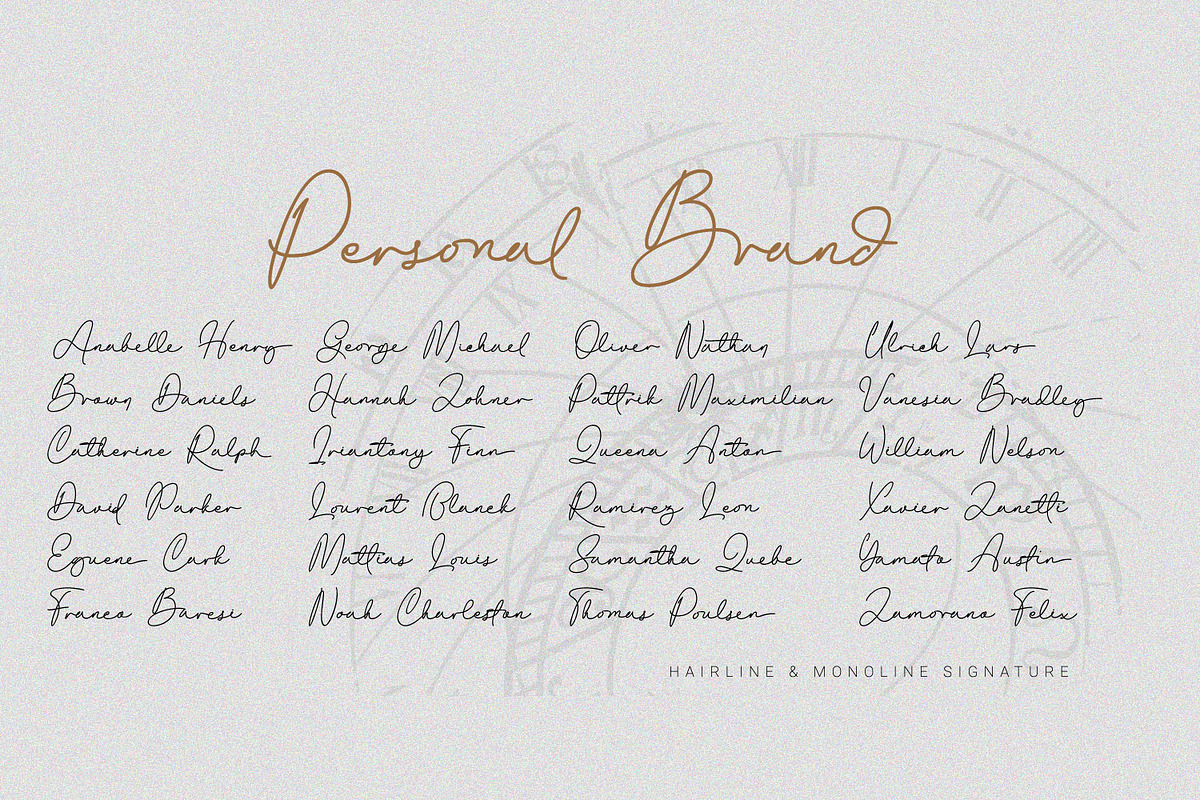 Personal Brand
Anabelle Henry
George Michael
Oliver Nathan
Ulrich Lars
Brown Daniels
Hannah Zohner
Pattrik Maximilian
Vanesia Bradley
Catherine Ralph
Iriantony Finn
Queena Anton
William Nelson
David Parker
Lourent Blanck
Ramirez Leon
Xavier Zanetti
Eguene Cark
Mattias Louis
Samantha Quebe
Yamato Austin
Franco Baresi
Noah Charleston
Thomas Poulsen
Zamorano Felix
HAIRLINE & MONOLINE SIGNATURE